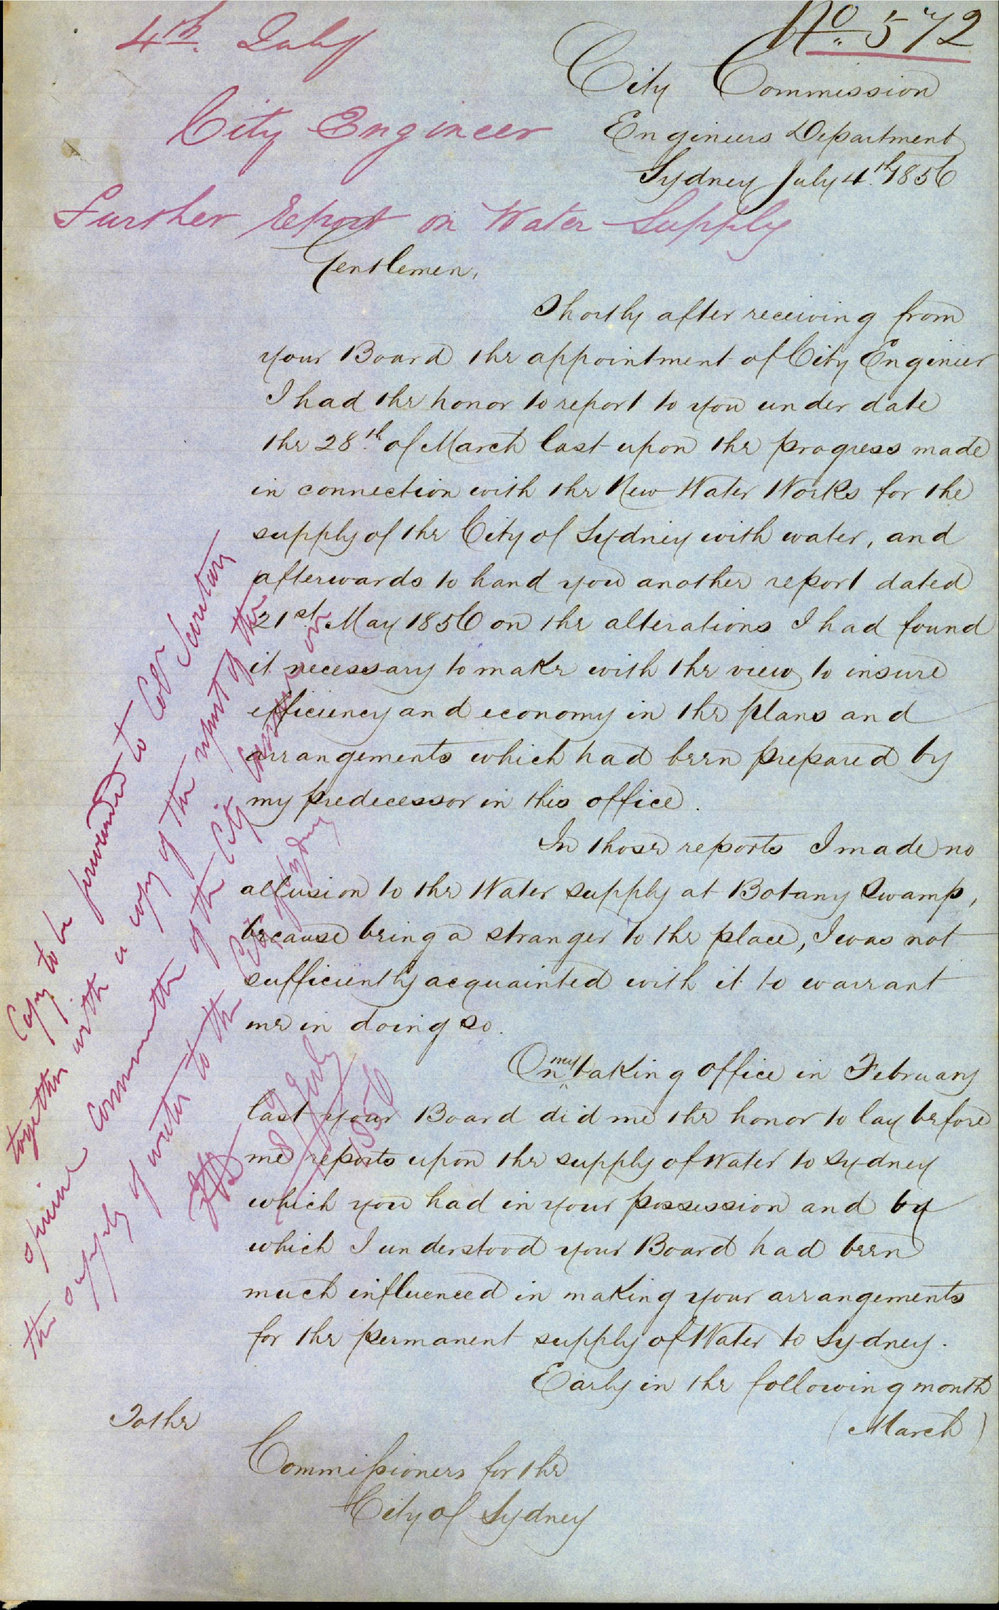 No. 572
4th. July
City Commission
City Engineer
Engineers Department
Sydney July 4th. 1856
Further report on Water Supply
Gentlemen,
Shortly after receiving from
your Board the appointment of City Engineer
I had the honor to report to you under date
the 28th. of March last upon the progress made
in connection with the New Water Works for the
supply of the City of Sydney with water, and
afterwards to hand you another report dated
21st. May 1856 on the alterations I had found
it necessary to make with the view to insure
efficiency and economy in the plans and
arrangements which had been prepared by
my predecessor in this office.
In those reports I made no
allusion to the Water supply at Botany Swamp,
because being a stranger to the place, I was not
sufficiently acquainted with it to warrant
me in doing so.
On my taking office in February
last your Board did me the honor to lay before
me reports upon the supply of Water to Sydney
which you had in your possession and by
which I understood your Board had been
much influenced in making your arrangements
for the permanent supply of Water to Sydney.
Early in the following month
(March)
To the
Commissioners for the
City of Sydney
Copy to be forwarded to Coln Secretary
together with a copy of the report of the
special Committee of the City Council on
the supply of water to the City of Sydney
8 July
1856